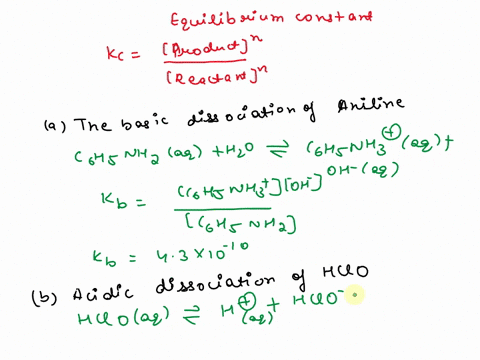 Equilibrium constant
Kc = [Product]ⁿ / [Reactant]ⁿ
(a) The basic dissociation of Aniline
C₆H₅NH₂(aq) + H₂O ⇌ C₆H₅NH₃⊕(aq) +
OH-(aq)
Kb = [C₆H₅NH₃⁺][OH⁻] / [C₆H₅NH₂]
Kb = 4.3×10⁻¹⁰
(b) Acidic dissociation of HClO
HClO(aq) ⇌ H⊕(aq) + HClO⁻